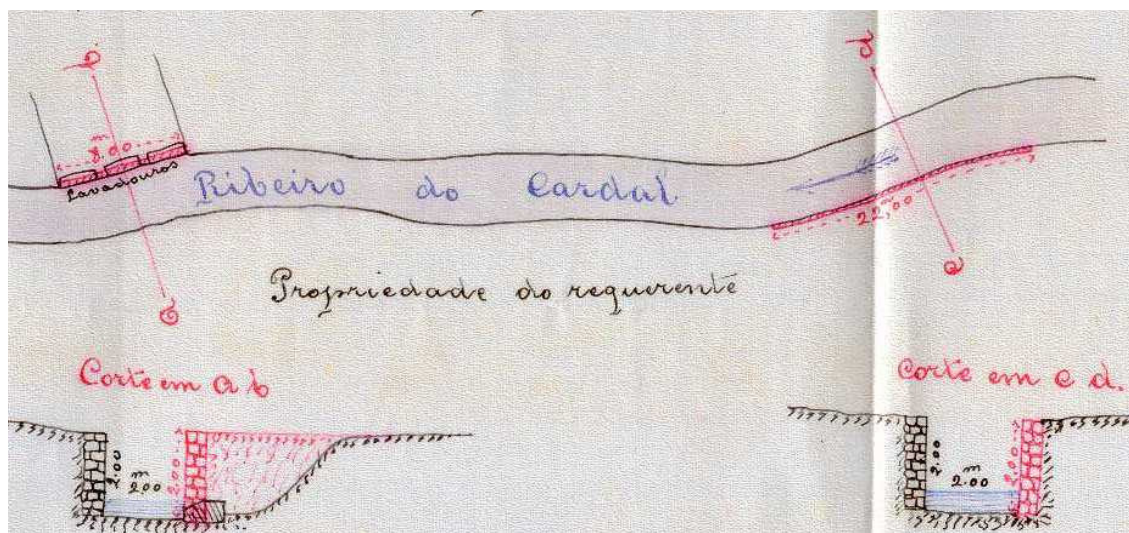 b
d
8.00 m
Lavadouros
Ribeiro do Cardal
22,00 m
a
c
Propriedade do requerente
Corte em a b
Corte em c d.
2.00
m
2.00
2.00
2.00
m
2.00
2.00